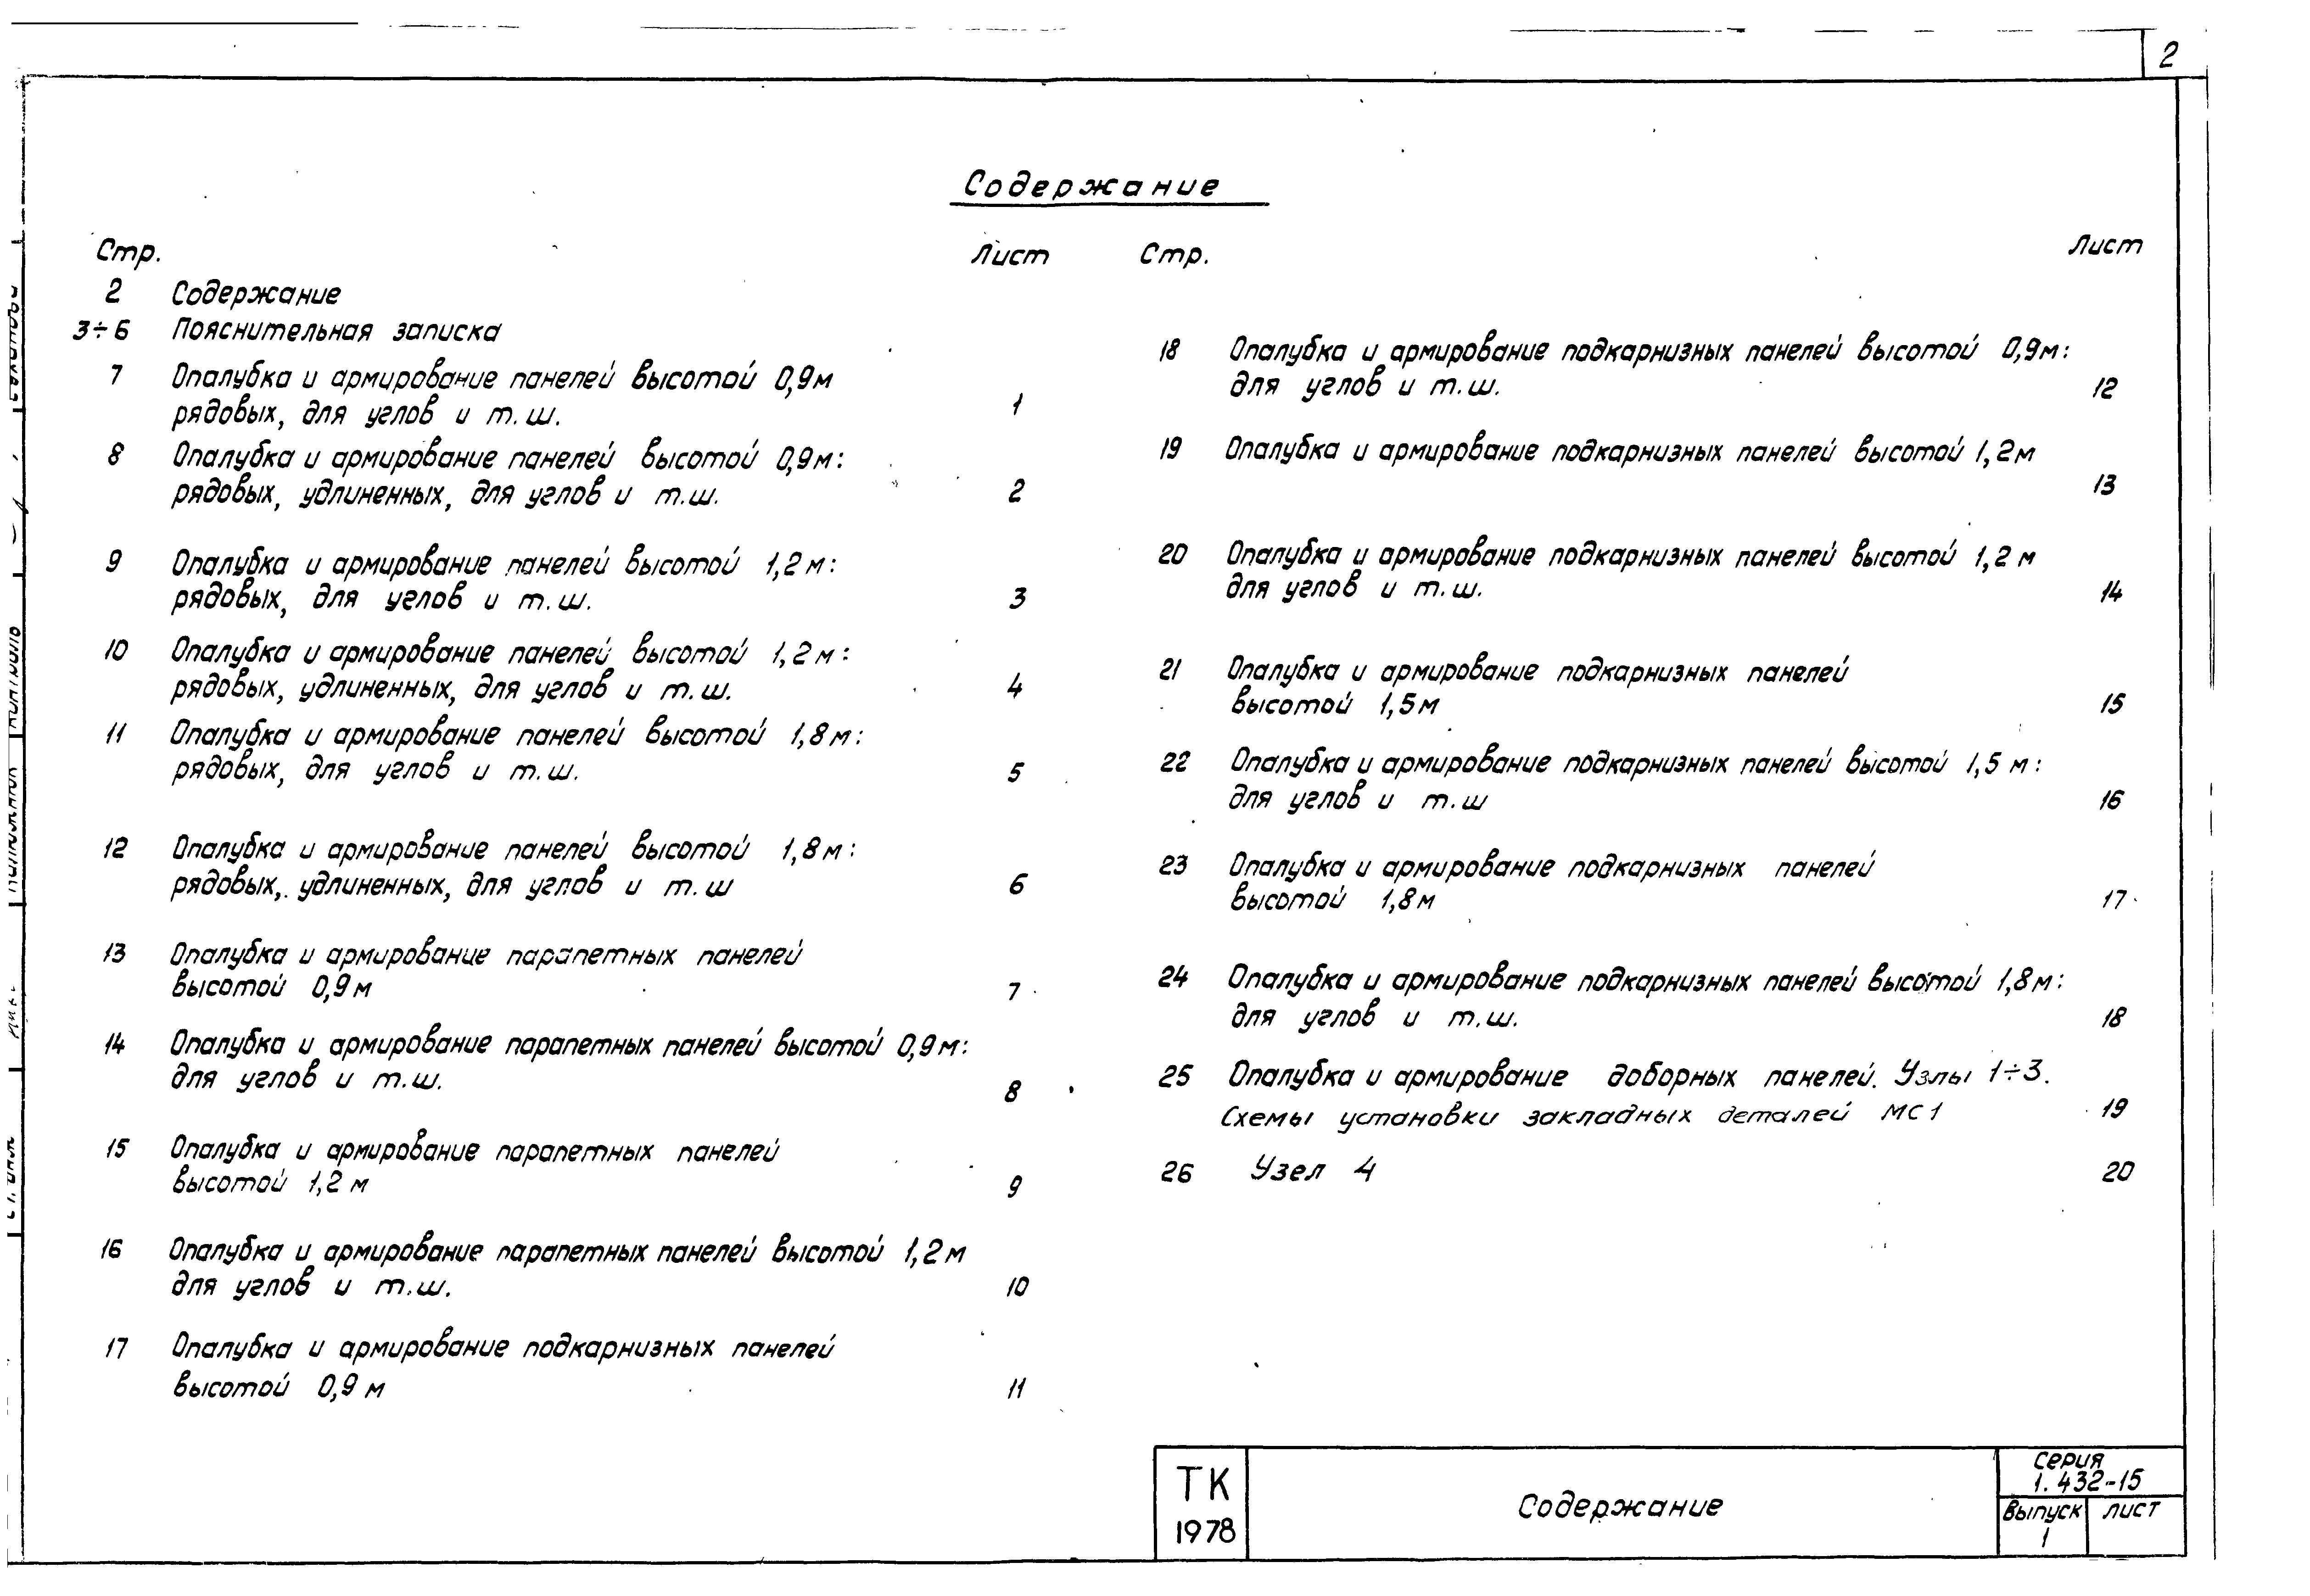 2
Содержание
Стр. Лист
2 Содержание
3÷6 Пояснительная записка
7 Опалубка и армирование панелей высотой 0,9м
рядовых, для углов и т.ш. 1
8 Опалубка и армирование панелей высотой 0,9м:
рядовых, удлиненных, для углов и т.ш. 2
9 Опалубка и армирование панелей высотой 1,2м:
рядовых, для углов и т.ш. 3
10 Опалубка и армирование панелей высотой 1,2м:
рядовых, удлиненных, для углов и т.ш. 4
11 Опалубка и армирование панелей высотой 1,8м:
рядовых, для углов и т.ш. 5
12 Опалубка и армирование панелей высотой 1,8м:
рядовых, удлиненных, для углов и т.ш 6
13 Опалубка и армирование парапетных панелей
высотой 0,9м 7
14 Опалубка и армирование парапетных панелей высотой 0,9м:
для углов и т.ш. 8
15 Опалубка и армирование парапетных панелей
высотой 1,2м 9
16 Опалубка и армирование парапетных панелей высотой 1,2м
для углов и т.ш. 10
17 Опалубка и армирование подкарнизных панелей
высотой 0,9м 11
Стр. Лист
18 Опалубка и армирование подкарнизных панелей высотой 0,9м:
для углов и т.ш. 12
19 Опалубка и армирование подкарнизных панелей высотой 1,2м
13
20 Опалубка и армирование подкарнизных панелей высотой 1,2м
для углов и т.ш. 14
21 Опалубка и армирование подкарнизных панелей
высотой 1,5м 15
22 Опалубка и армирование подкарнизных панелей высотой 1,5 м:
для углов и т.ш 16
23 Опалубка и армирование подкарнизных панелей
высотой 1,8м 17
24 Опалубка и армирование подкарнизных панелей высотой 1,8м:
для углов и т.ш. 18
25 Опалубка и армирование доборных панелей. Узлы 1÷3.
Схемы установки закладных деталей МС1 19
26 Узел 4 20
ТК
1978
Содержание
серия
1.432-15
Выпуск лист
1